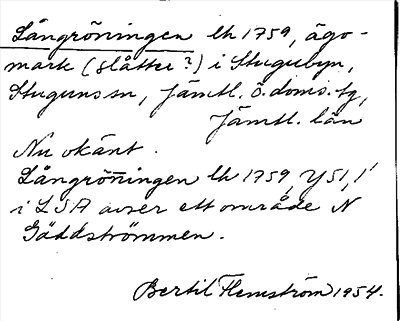 Långröningen lk 1759, ägo-
mark (slåtter?) i Stugubyn,
Stuguns sn, Jämtl. ö. doms. tg,
Jämtl. län
Nu okänt.
Långröningen lk 1759, Y51,1'
i LSA avser ett område N
Gäddströmmen.
Bertil Flemström 1954.